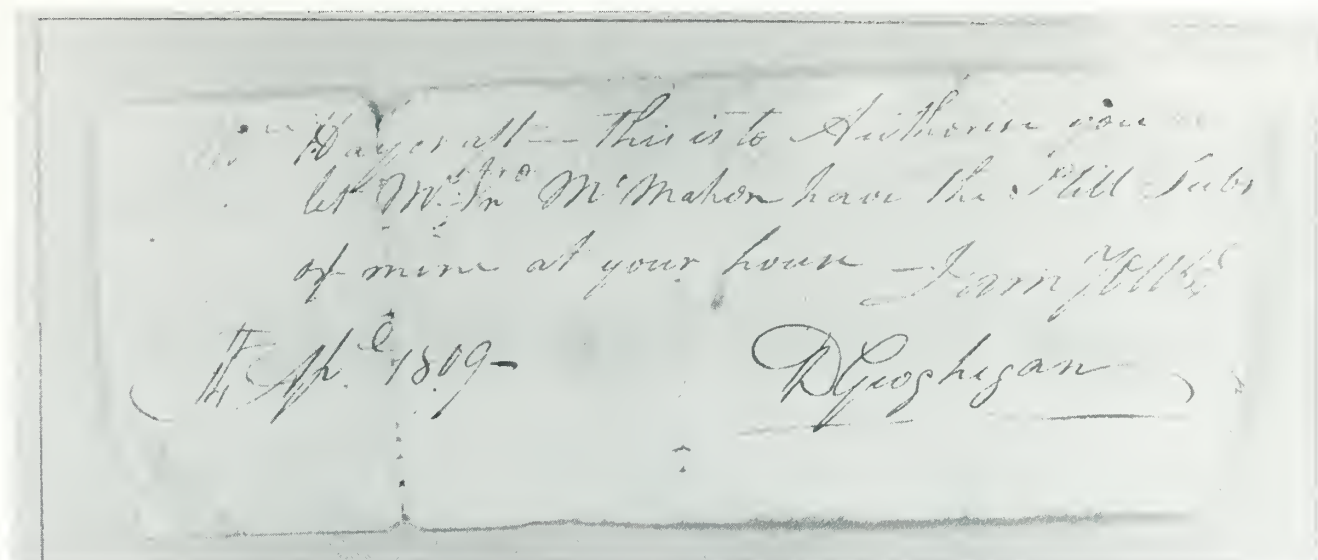 Mr Haycraft — this is to Authorise you
let Mr Jno McMahon have the Still Tubs
of mine at your house — I am Yours
Apl 1809 —
D Geoghegan